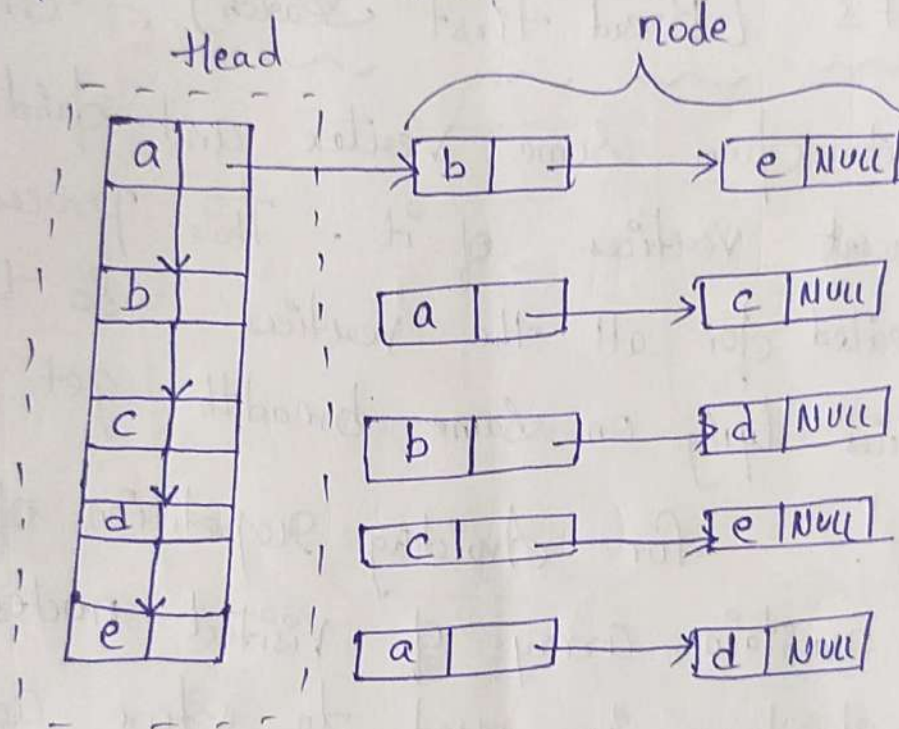 Head
node
a b e NULL
b a c NULL
c b d NULL
d c e NULL
e a d NULL